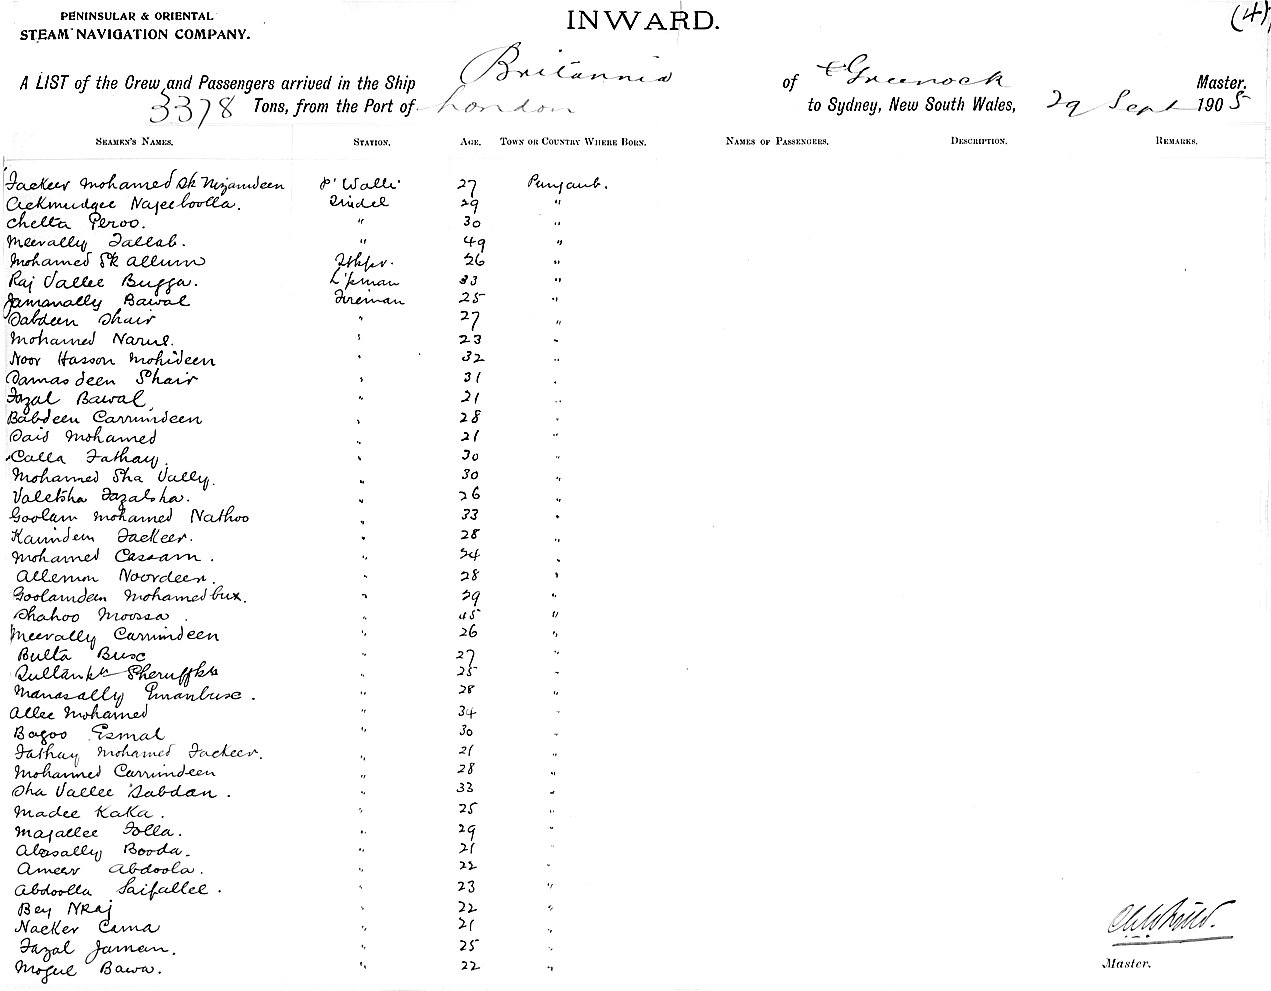 PENINSULAR & ORIENTAL
STEAM NAVIGATION COMPANY.
INWARD.
(4)
A LIST of the Crew and Passengers arrived in the Ship Britannia of Greenock Master.
3378 Tons, from the Port of London to Sydney, New South Wales, 29 Sept 1905
SEAMEN'S NAMES. STATION. AGE. TOWN OR COUNTRY WHERE BORN. NAMES OF PASSENGERS. DESCRIPTION. REMARKS.
Fackeer Mohamed Sk Nizamdeen P' Walli 27 Punjaub.
Najeeboolla. 29 "
Chetta Peroo. " 30 "
Meerally Tallab. " 49 "
Mohamed Sk Allum 26 "
Raj Vallee Bugga. 33 "
Jamanally Bawal Fireman 25 "
Sabdeen Shair " 27 "
Mohamed " 23 "
Noor Hasson Mohideen " 32 "
deen Shair " 31 "
Fazal Bawal " 21 "
Babdeen Carrimdeen " 28 "
Said Mohamed " 21 "
Calla Fathay. " 30 "
Mohamed Sha Vally. " 30 "
Valetsha Fazalsha. " 26 "
Goolam Mohamed Nathoo " 33 "
Fackeer. " 28 "
Mohamed Cassam. " "
Noordeen. " 28 "
Goolamdeen Mohamedbux. " 29 "
Shahoo Moosa. " "
Meerally Carrimdeen " 26 "
Bulta Busc " 27 "
" 25 "
Manasally Emanbuse. " 28 "
Allee Mohamed " 34 "
Bagoo Esmal " 30 "
Fathay Mohamed Fackeer. " 21 "
Mohamed Carrimdeen " 28 "
Sha Vallee Sabdan. " 33 "
Madee Kaka. " 25 "
Majallee Folla. " 29 "
Booda. " 21 "
Ameer Abdoola. " 22 "
Abdoolla Saifallee. " 23 "
Bey " 22 "
Cama " 21 "
Fazal Jaman. " 25 "
Mogul Bawa. " 22 "
Master.